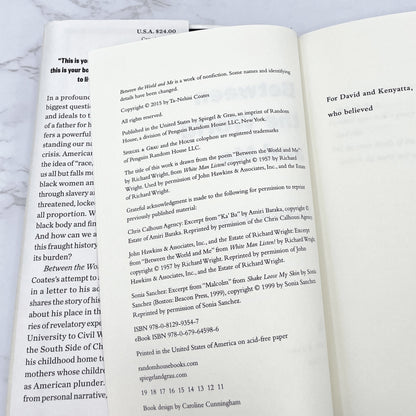 U.S.A. $24.00
"This is you
this is your bo
to li
In a profound
biggest question
and ideals to the
of a father for h
fers a powerful
standing our na
crisis. American
the idea of "race,
us all but falls mo
black women an
through slavery a
threatened, locked
all proportion. W
black body and fin
And how can we a
this fraught history
its burden?
Between the Wo
Coates's attempt to
in a letter to his ad
shares the story of his
about his place in th
ries of revelatory exper
University to Civil W
the South Side of Ch
his childhood home to
mothers whose childre
as American plunder.
from personal narrative,
Between the World and Me is a work of nonfiction. Some names and identifying
details have been changed.
Copyright © 2015 by Ta-Nehisi Coates
All rights reserved.
Published in the United States by Spiegel & Grau, an imprint of Random
House, a division of Penguin Random House LLC, New York.
SPIEGEL & GRAU and the HOUSE colophon are registered trademarks
of Penguin Random House LLC.
The title of this work is drawn from the poem "Between the World and Me"
by Richard Wright, from White Man Listen! copyright © 1957 by Richard
Wright. Used by permission of John Hawkins & Associates, Inc., and the Estate
of Richard Wright.
Grateful acknowledgment is made to the following for permission to reprint
previously published material:
Chris Calhoun Agency: Excerpt from "Ka 'Ba" by Amiri Baraka, copyright ©
Estate of Amiri Baraka. Reprinted by permission of the Chris Calhoun Agency.
John Hawkins & Associates, Inc., and the Estate of Richard Wright: Excerpt
from "Between the World and Me" from White Man Listen! by Richard Wright,
copyright © 1957 by Richard Wright. Reprinted by permission of John Hawkins
& Associates, Inc., and the Estate of Richard Wright.
Sonia Sanchez: Excerpt from "Malcolm" from Shake Loose My Skin by Sonia
Sanchez (Boston: Beacon Press, 1999), copyright © 1999 by Sonia Sanchez.
Reprinted by permission of Sonia Sanchez.
ISBN 978-0-8129-9354-7
eBook ISBN 978-0-679-64598-6
Printed in the United States of America on acid-free paper
randomhousebooks.com
spiegelandgrau.com
19 18 17 16 15 14 13 12 11
Book design by Caroline Cunningham
For David and Kenyatta,
who believed